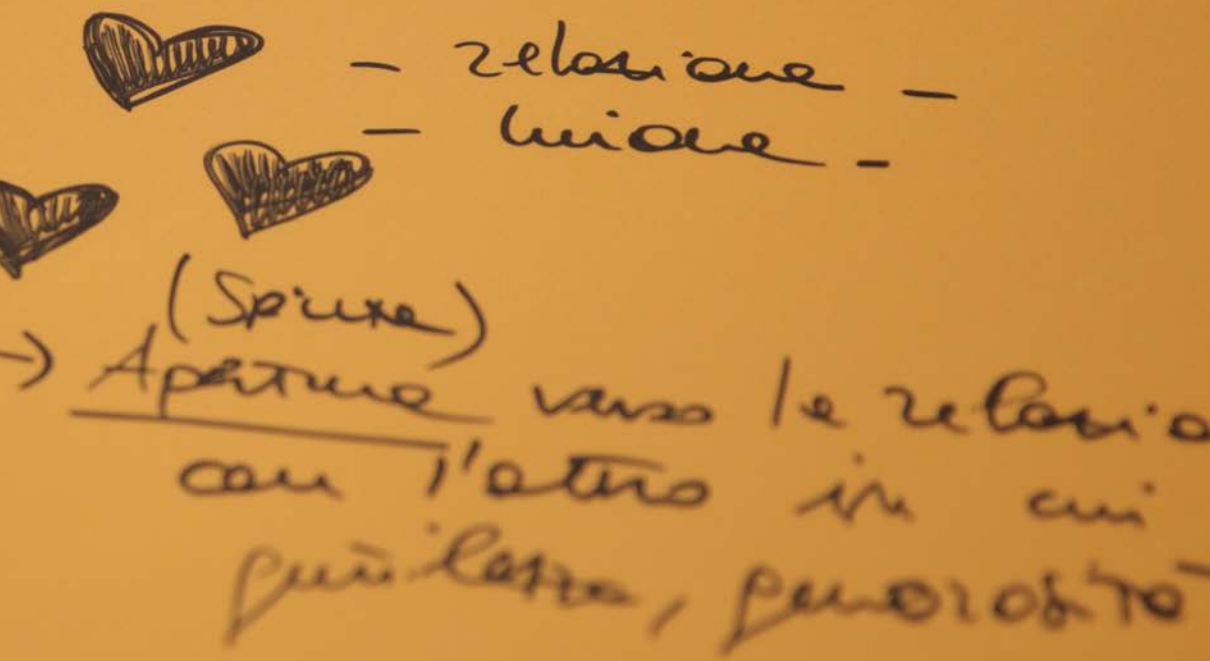 - relazione -
- unione -
(Spinta)
→ Apertura verso la relazio
con l'altro in cui
gentilezza, generosità